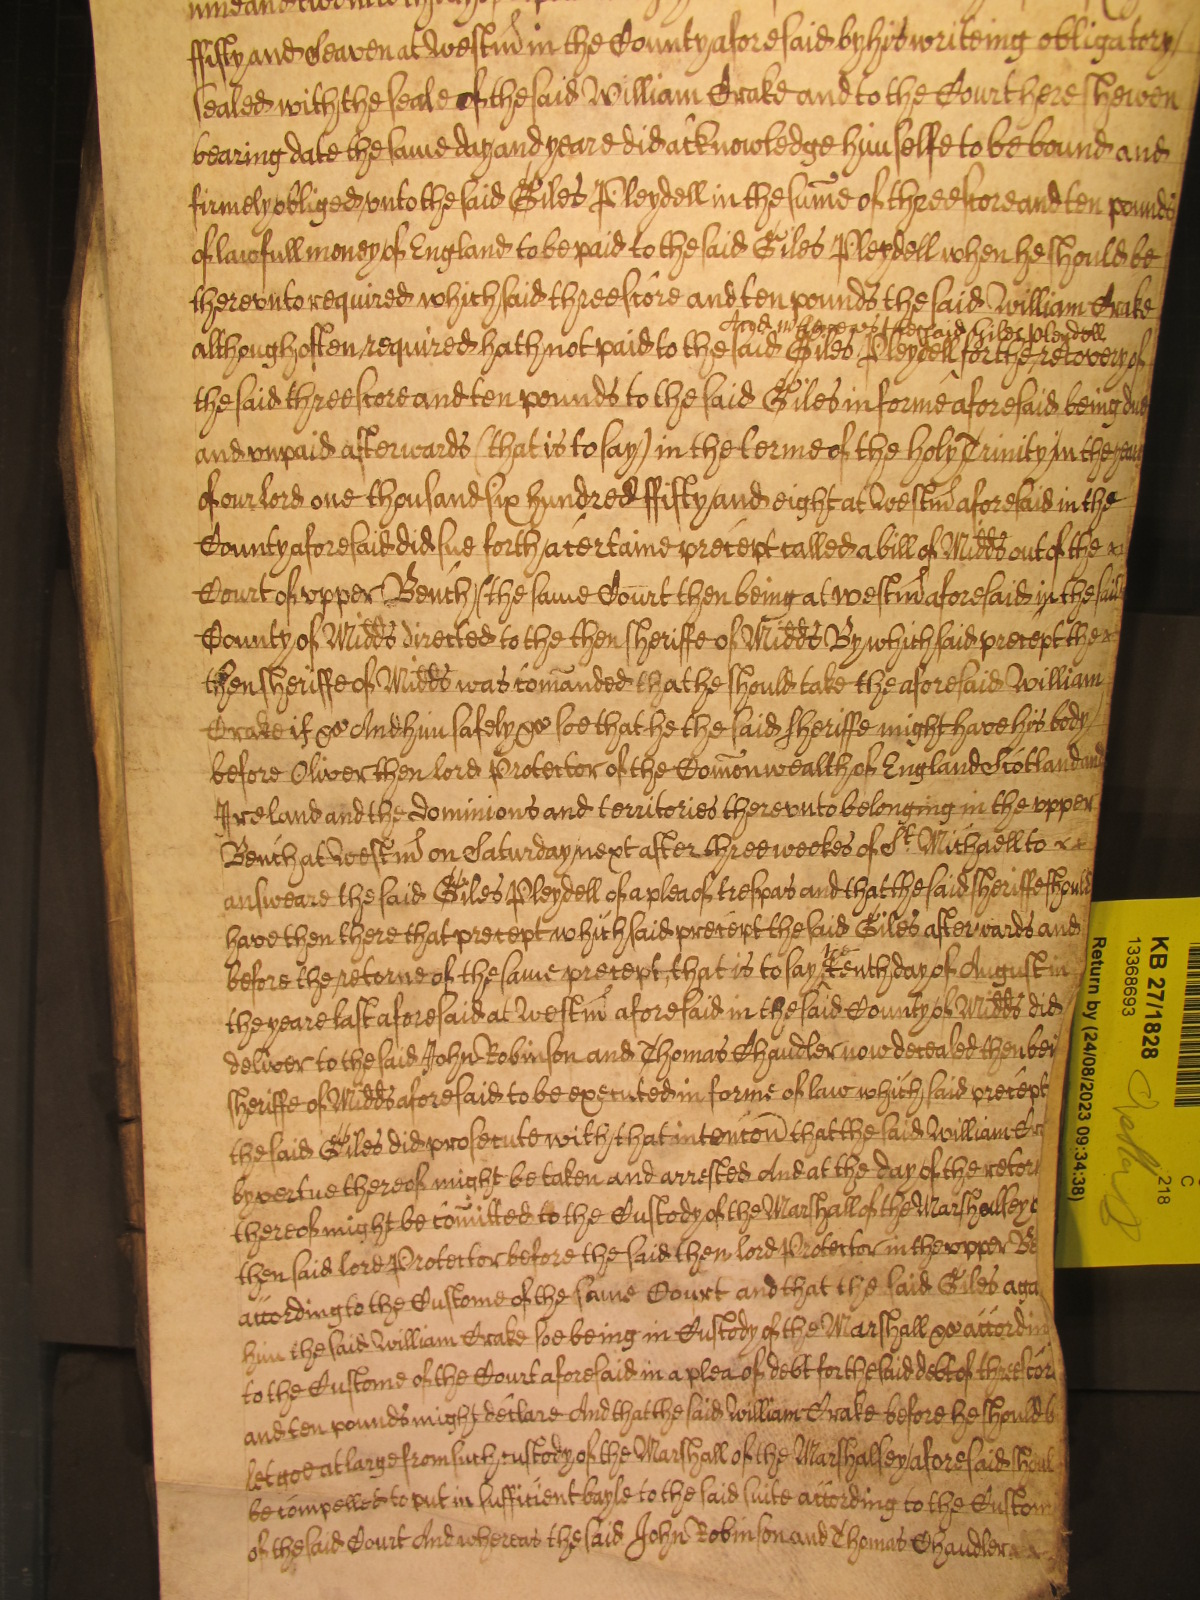 ffifty and Seaven at Westmr in the County aforesaid by his writeing obligatory
sealed with the seale of the said William Crake and to the Court here shewen
bearing date the same day and yeare did acknowledge himselfe to be bound and
firmely obliged vnto the said Giles Pleydell in the sume of threescore and ten pounds
of lawfull money of England to be paid to the said Giles Pleydell when he should be
therevnto required which said threescore and ten pounds the said William Crake
And whereas the said Giles Pleydell
although often required hath not paid to the said Giles Pleydell for the recovery of
the said threescore and ten pounds to the said Giles in forme aforesaid being due
and vnpaid afterwards (that is to say) in the terme of the holy Trinity in the yeare
of our lord one thousand six hundred ffifty and eight at Westmr aforesaid in the
County aforesaid did sue forth a certaine precept called a bill of Midds out of the
Court of vpper Bench (the same Court then being at westmr aforesaid in the said
County of Midds directed to the then sheriffe of Midds By which said precept the
then sheriffe of Midds was comanded that he should take the aforesaid William
Crake if &c And him safely &c soe that he the said sheriffe might have his body
before Oliver then lord Protector of the Comonwealth of England Scotland and
Ireland and the dominions and territories therevnto belonging in the vpper
Bench at Westmr on Saturday next after three weekes of St. Michaell to
answeare the said Giles Pleydell of a plea of trespas and that the said sheriffe should
have then there that precept which said precept the said Giles afterwards and
before the retorne of the same precept, that is to say the tenth day of August in
the yeare last aforesaid at Westmr aforesaid in the said County of Midds did
deliver to the said John Robinson and Thomas Chandler now deceased then bei
sheriffe of Midds aforesaid to be executed in forme of law which said precept
the said Giles did prosecute with that intencon that the said William Cr
by vertue thereof might be taken and arrested And at the day of the retor
thereof might be comitted to the Custody of the Marshall of the Marshalsey
then said lord Protector before the said then lord Protector in the vpper Be
according to the Custome of the same Court and that the said Giles aga
him the said William Crake soe being in Custody of the Marshall &c accordin
to the Custome of the Court aforesaid in a plea of debt for the said debt of threescor
and ten pounds might declare And that the said William Crake before he should b
let goe at large from such custody of the Marshall of the Marshalsey aforesaid shoul
be compelled to put in sufficient bayle to the said suite according to the Custom
of the said Court And whereas the said John Robinson and Thomas Chandler
KB 27/1828
13368693
Return by (24/08/2023 09:34:38)
C
218